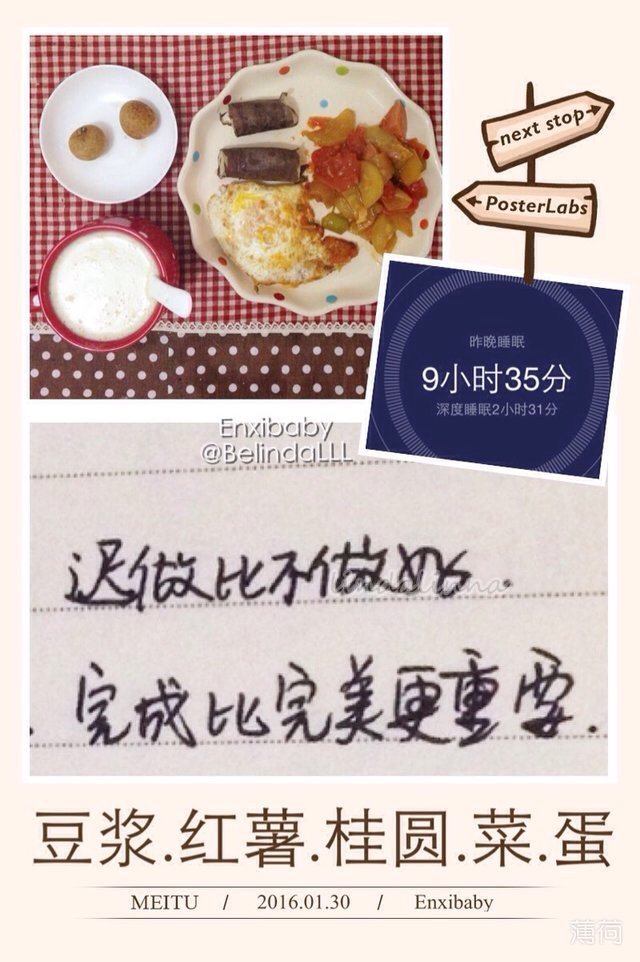 next stop
PosterLabs
昨晚睡眠
9小时35分
深度睡眠2小时31分
Enxibaby
@BelindaLLL
迟做比不做好
完成比完美更重要.
豆浆.红薯.桂圆.菜.蛋
MEITU / 2016.01.30 / Enxibaby
薄荷